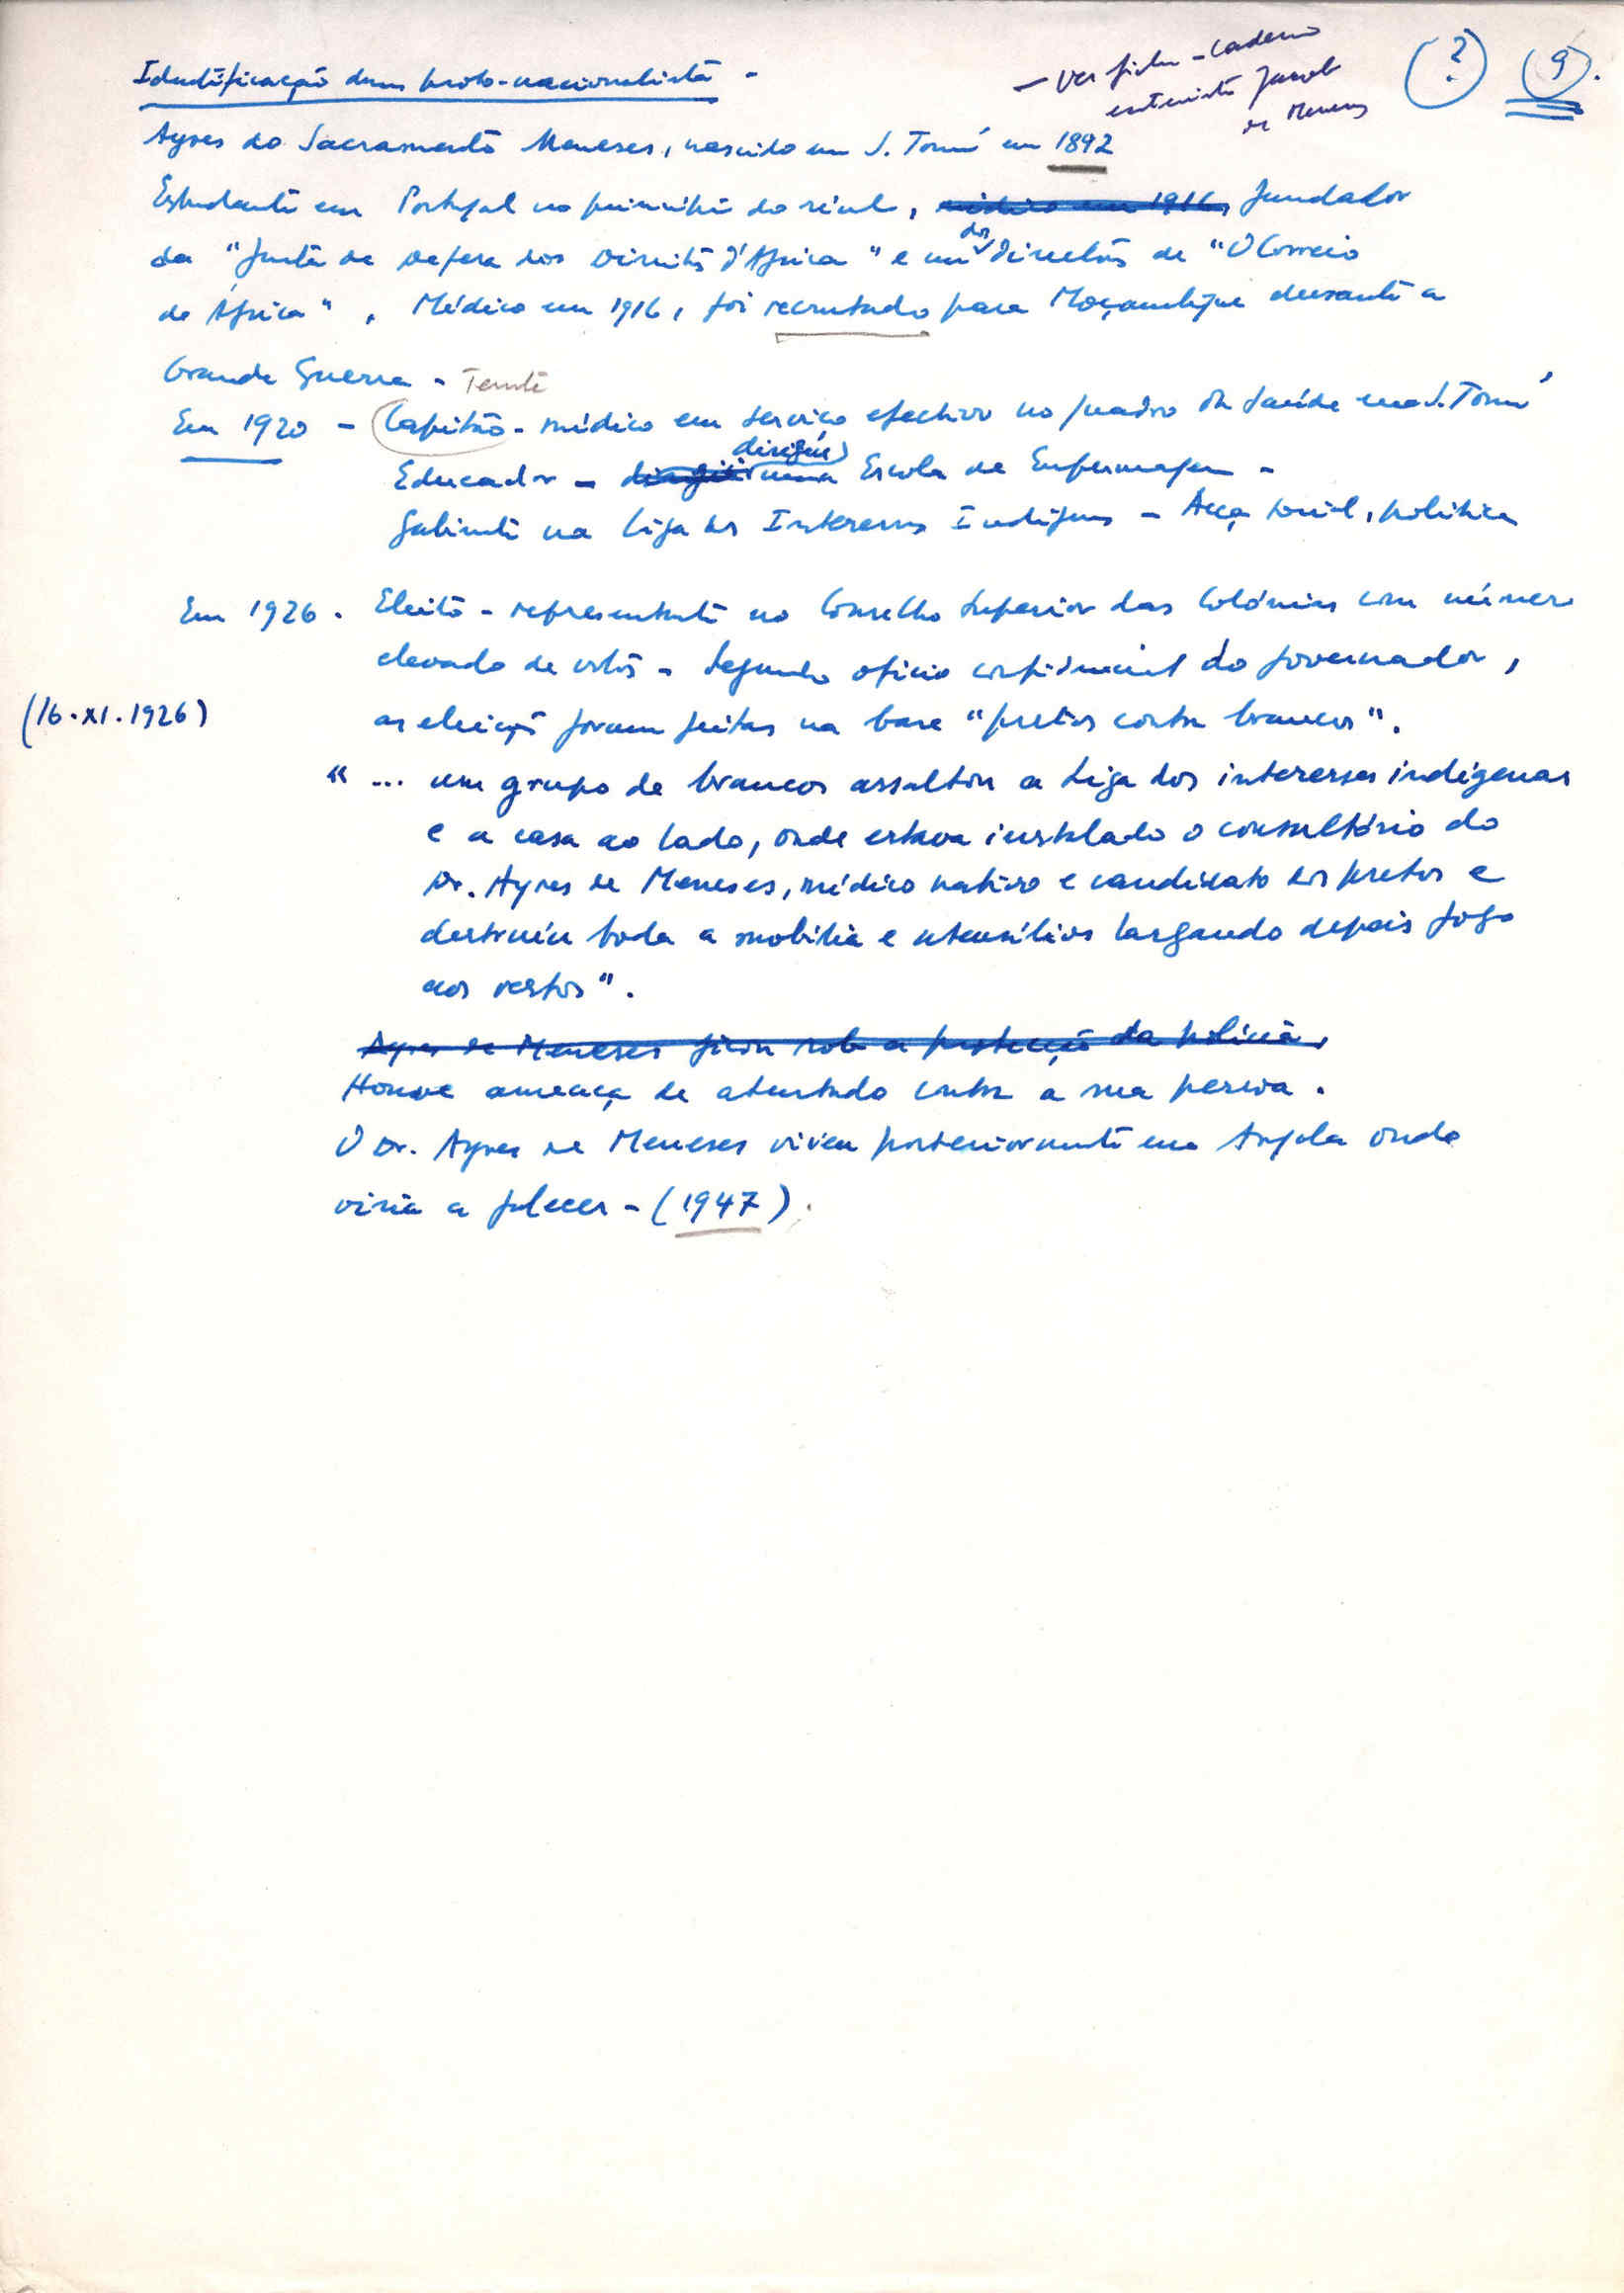 Identificação dum proto-nacionalista -
- Ver ficha - caderno
entrevista Jacob
de Meneses
(?) (9).
Ayres do Sacramento Meneses, nascido em S. Tomé em 1892
Estudante em Portugal no princípio do século, médico em 1916, fundador
da "Junta de Defesa dos Direitos d'África" e um dos directores de "O Correio
de África", Médico em 1916, foi recrutado para Moçambique durante a
Grande Guerra - Tente
Em 1920 - Capitão-médico em serviço efectivo no quadro de saúde em S. Tomé
Educador - dirigiu uma Escola de Enfermagem -
dirigiu
na Liga dos Interesses Indígenas - Acção social, política
Em 1926. Eleito - representante no Conselho Superior das Colónias com número
elevado de votos - Segundo ofício confidencial do governador,
(16.XI.1926) as eleições foram feitas na base "pretos contra brancos".
"... um grupo de brancos assaltou a Liga dos interesses indígenas
e a casa ao lado, onde estava instalado o consultório do
Dr. Ayres de Meneses, médico nativo e candidato dos pretos e
destruiu toda a mobília e utensílios largando depois fogo
aos restos".
Ayres de Meneses ficou sob a protecção da polícia,
Houve ameaça de atentado contra a sua pessoa.
O Dr. Ayres de Meneses viveu posteriormente em Angola onde
viria a falecer - (1947).